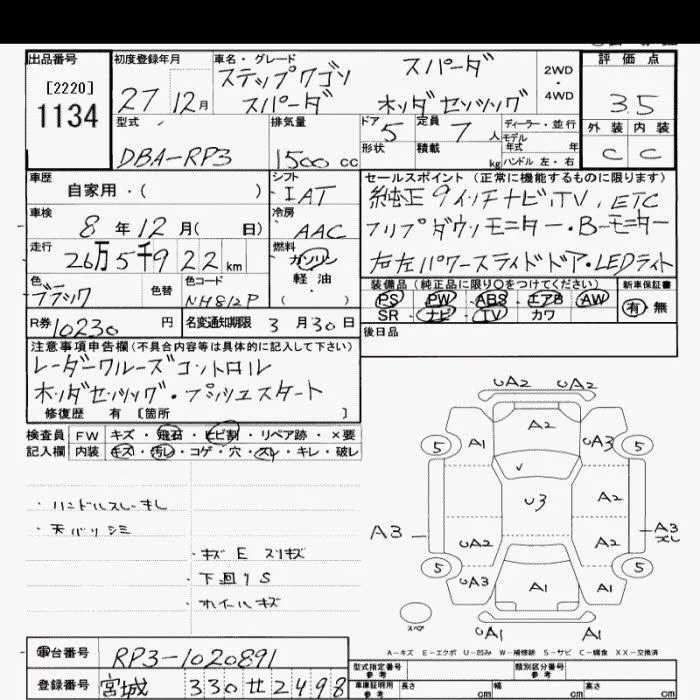 出品番号
[2220]
1134
初度登録年月
27 12月
車名・グレード
ステップワゴン スパーダ
スパーダ ホンダセンシング
2WD
4WD
評価点
3.5
型式
DBA-RP3
排気量
1500 cc
ドア
5
定員
7 人
ディーラー・並行
モデル
年式 年
形状
積載
kg
ハンドル 左・右
外装 内装
C C
車歴
自家用・( )
シフト
IAT
セールスポイント (正常に機能するものに限ります)
純正9インチナビ,TV,ETC
フリップダウンモニター・Bモニター
右左パワースライドドア・LEDライト
車検
8年12月( 日)
冷房
AAC
走行
26万5千922km
燃料
ガソリン
軽油
( )
色
ブラック
色替
色コード
NH812P
装備品 (純正品に限り○をつけてください)
PS PW ABS エアB AW
SR ナビ TV カワ
新車保証書
有 無
R券 10230 円
名変通知期限 3月30日
後日品
注意事項申告欄(不具合内容等は具体的に記入して下さい)
レーダークルーズコントロル
ホンダセンシング・プッシュスタート
修復歴 有 [箇所 ]
検査員 FW キズ・飛石・ヒビ割・リペア跡・×要
記入欄 内装 キズ・汚レ・コゲ・穴・スレ・キレ・破レ
・ハンドルスレ・キレ
・天バリシミ
・キズ E スリキズ
・下回リS
・ホイールキズ
UA2 UA2
A2
5 A1 UA3 5
U3
A2
A3 UA2 A2 A3
5 UA3 A1 A1 5
スペア
UA1 A1
A-キズ E-エクボ U-凹み W-補修跡 S-サビ C-腐食 XX-交換済
車台番号 RP3-1020891
型式指定番号
参考
類別区分番号
参考
登録番号 宮城 330 せ 2498
車庫証明用
参考
長さ cm 幅 cm 高さ cm